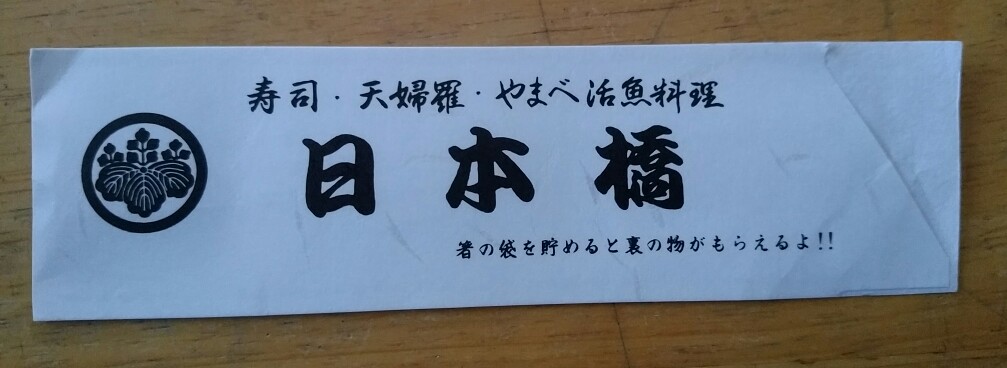 寿司・天婦羅・やまべ活魚料理
日本橋
箸の袋を貯めると裏の物がもらえるよ!!